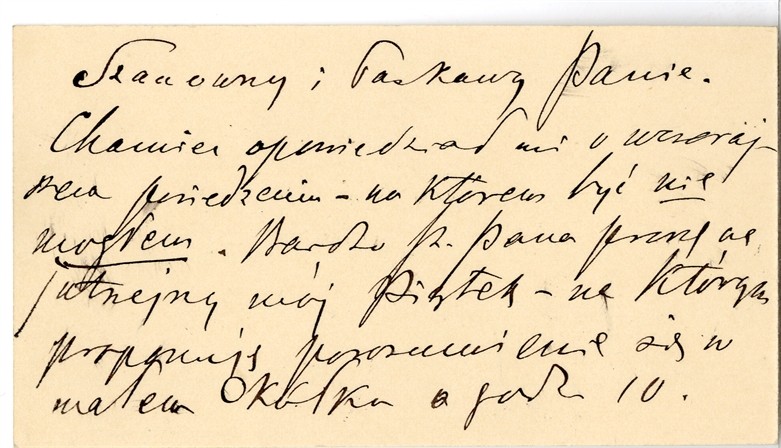 Szanowny i Łaskawy Panie.
Chamiec opowiedział mi o wczoraj-
szem posiedzeniu – na którem być nie
mogłem. Bardzo Sz. Pana proszę na
jutrzejszy mój Piątek – na którym
proponuję porozumienie się w
małem Kółku o godz 10.